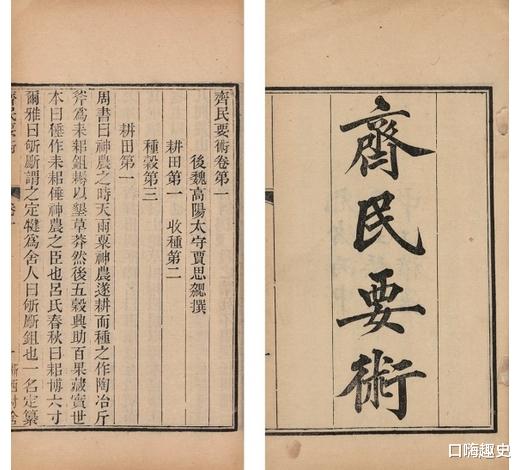 齊民要術
齊民要術卷第一
後魏高陽太守賈思勰撰
耕田第一 收種第二
種穀第三
耕田第一
周書曰神農之時天雨粟神農遂耕而種之作陶冶斤
斧爲耒耜鉏耨以墾草莽然後五穀興助百果藏實世
本曰倕作耒耜倕神農之臣也呂氏春秋曰耜博六寸
爾雅曰斪斸謂之定犍爲舍人曰斪斸鉏也一名定纂
齊民要術 卷一
口嗨趣史